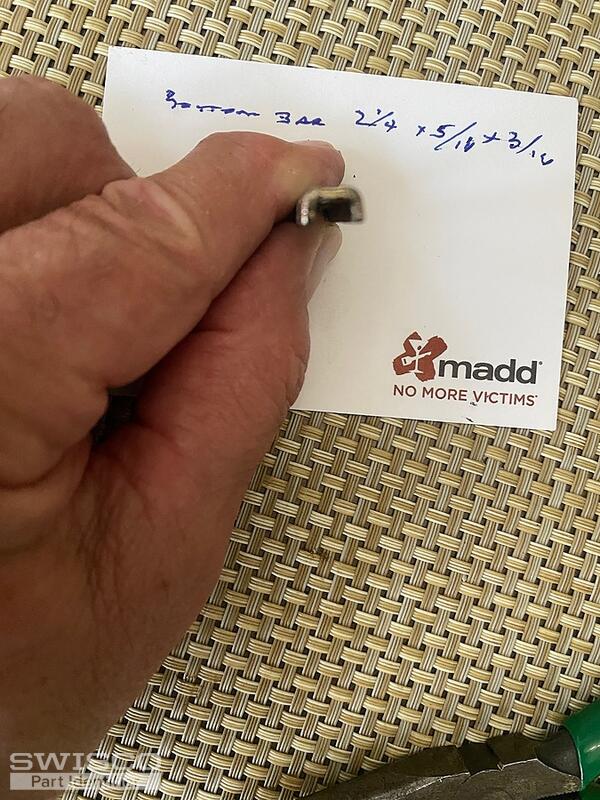 Bottom Bar 2 1/4 x 5/16 x 3/16
madd
NO MORE VICTIMS
SWISCO
Part Identific